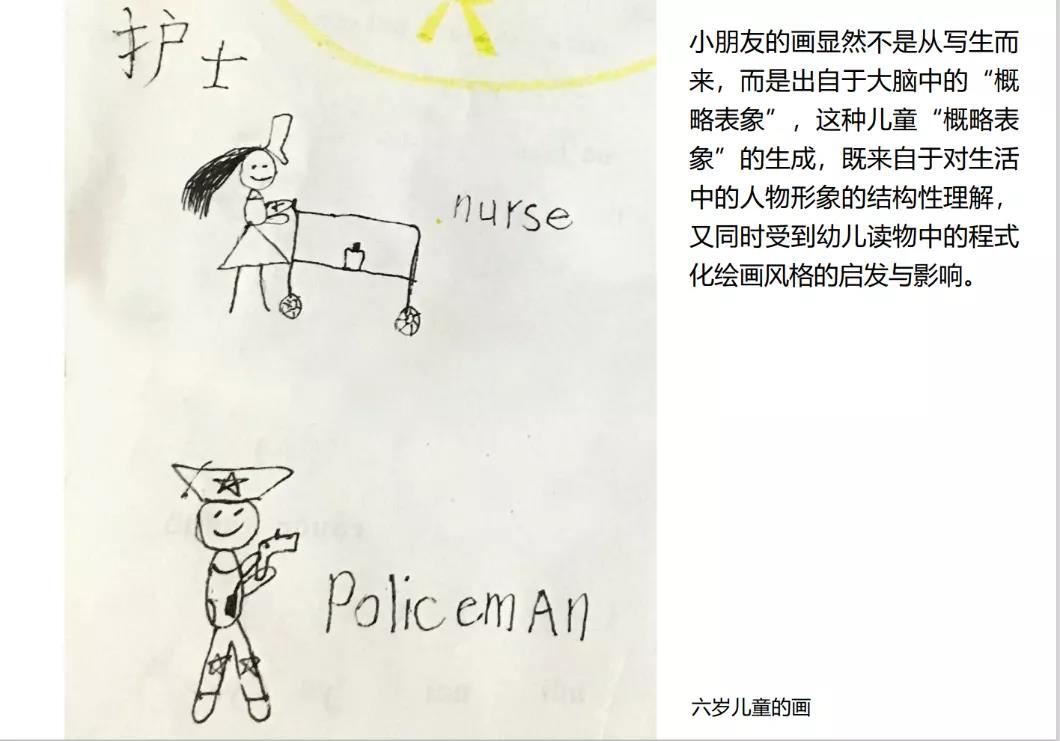 护士
nurse
PolicemAn
小朋友的画显然不是从写生而
来，而是出自于大脑中的“概
略表象”，这种儿童“概略表
象”的生成，既来自于对生活
中的人物形象的结构性理解，
又同时受到幼儿读物中的程式
化绘画风格的启发与影响。
六岁儿童的画